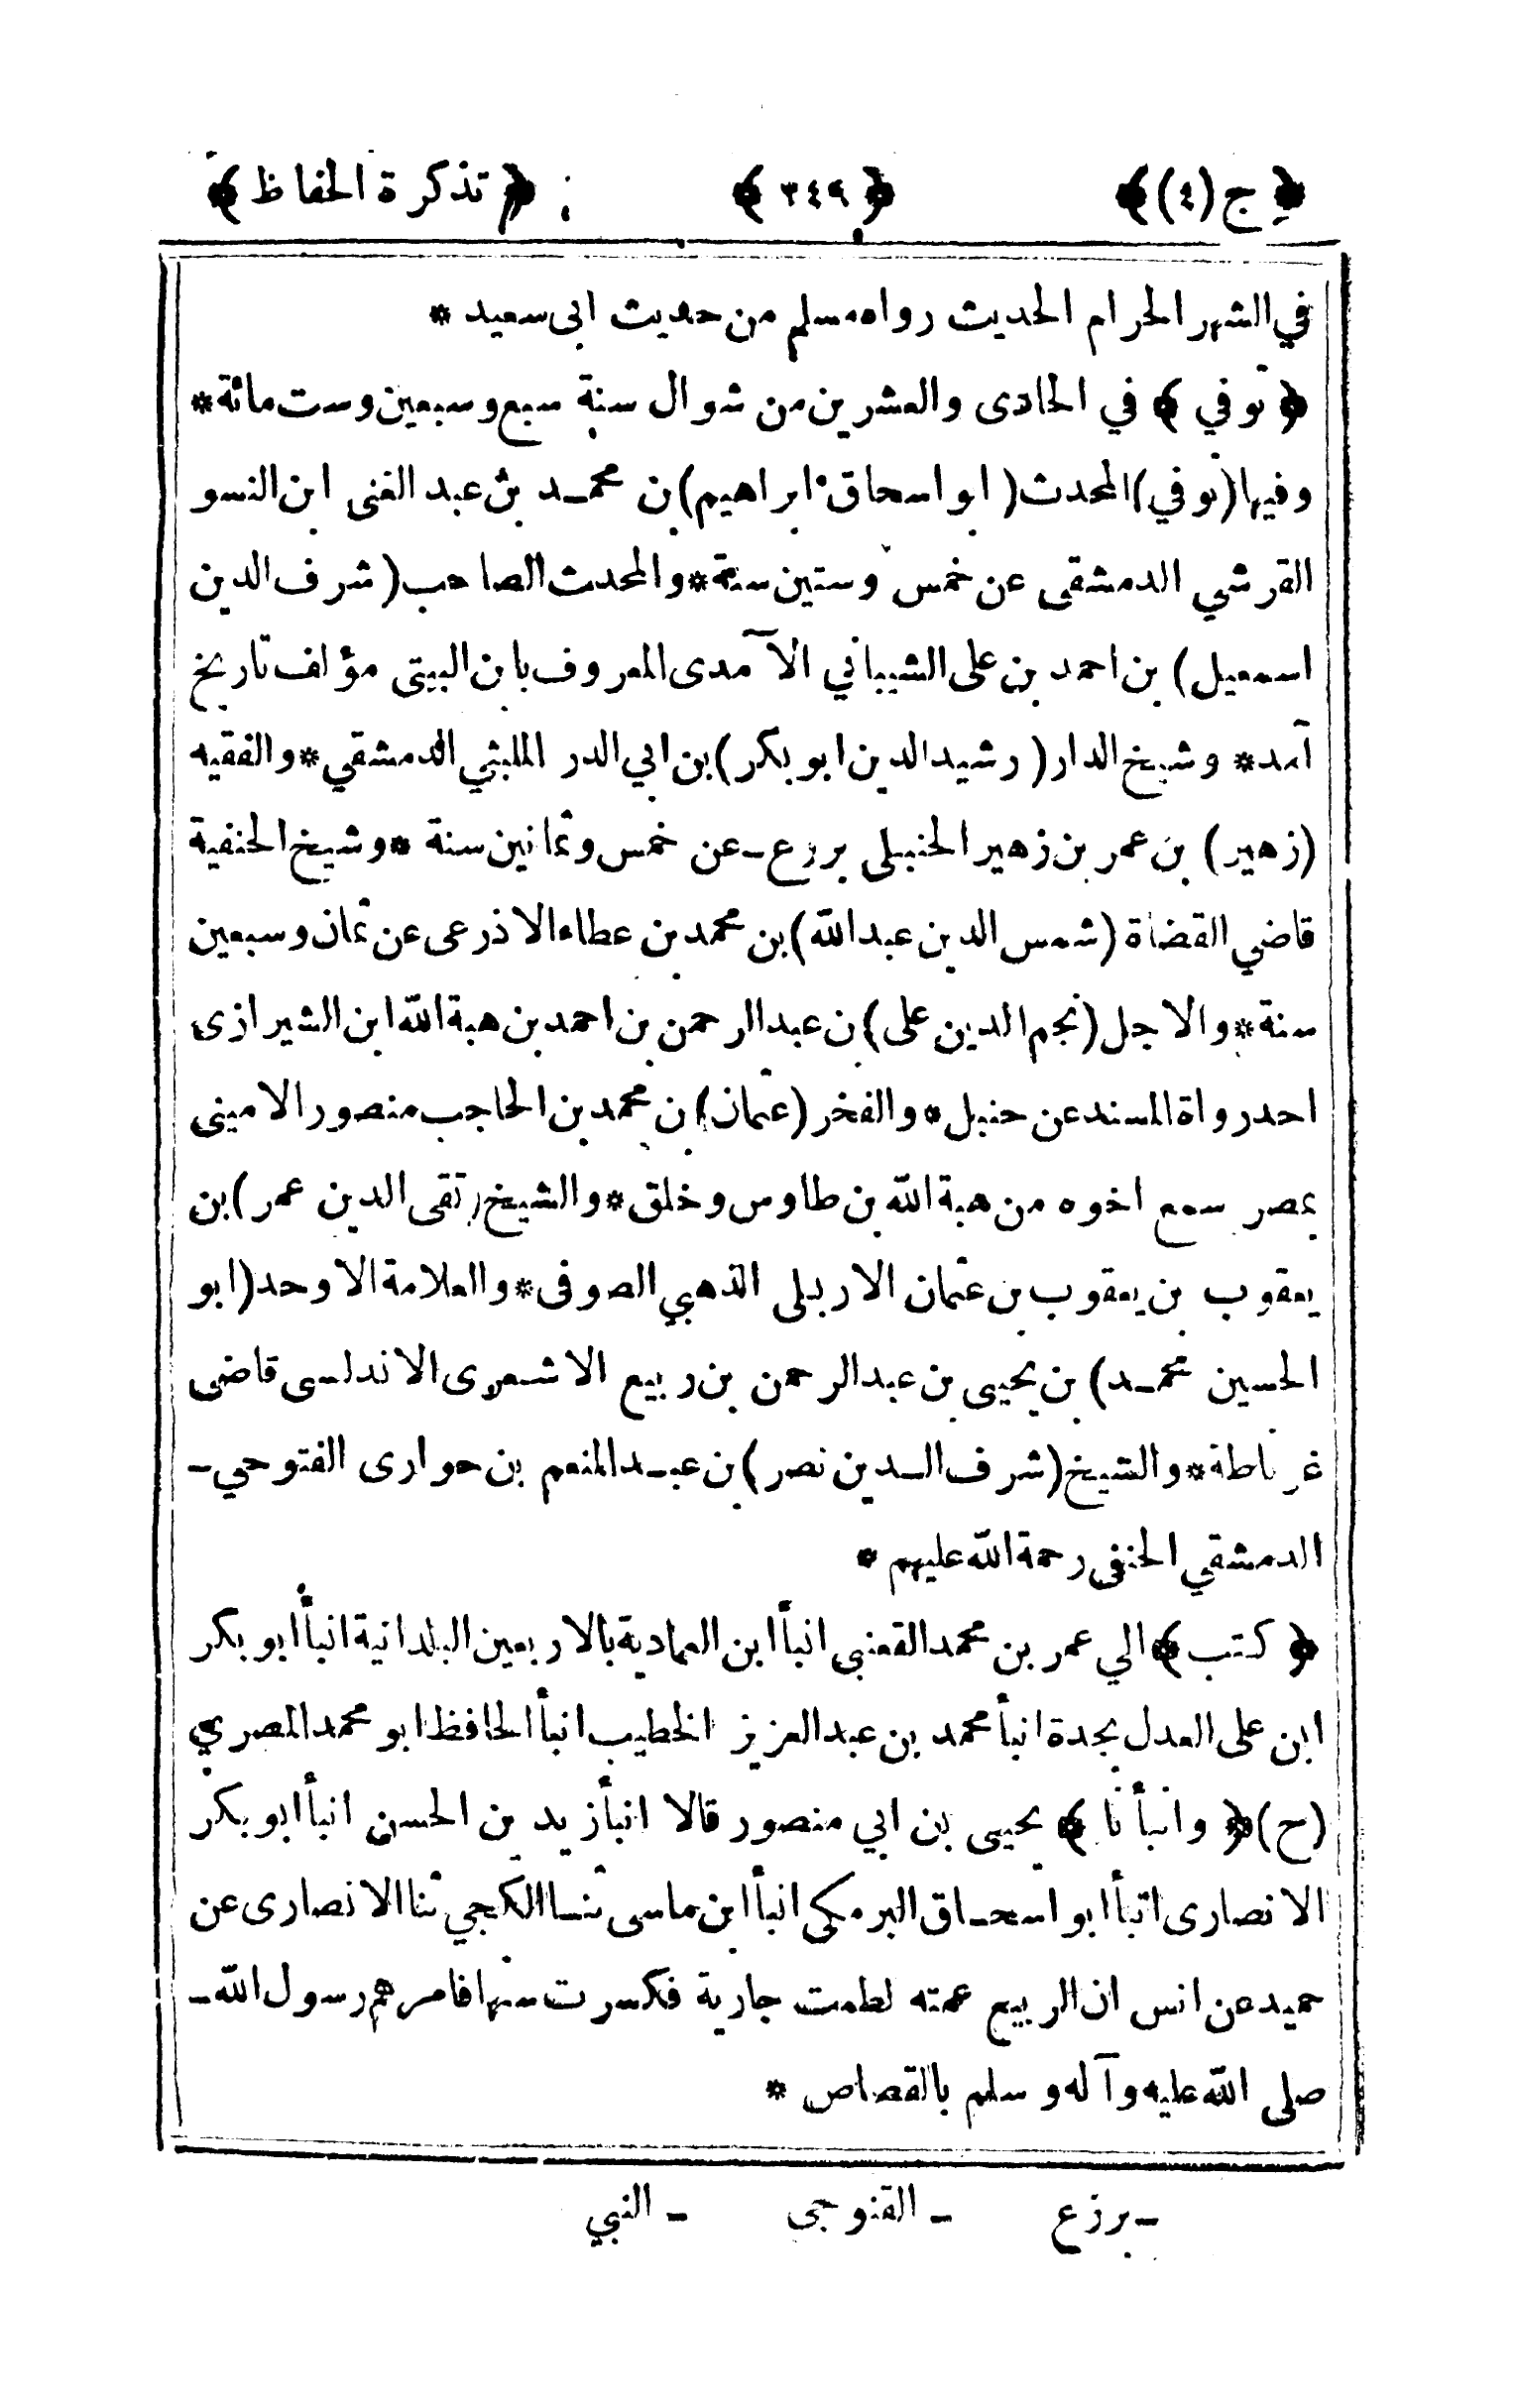 ﴿ج (٤)﴾ ﴿٣٤٩﴾ ﴿تذكرة الحفاظ﴾
في الشهر الحرام الحديث رواه مسلم من حديث ابى سعيد *
﴿توفي﴾ في الحادى والعشرين من شوال سنة سبع وسبعين وست مائة *
وفيها (توفي) المحدث (ابو اسحاق ابراهيم) بن محمد بن عبد الغنى ابن النسو
القرشي الدمشقى عن خمس وستين سنة * والمحدث الصاحب (شرف الدين
اسمعيل) بن احمد بن على الشيباني الآمدى المعروف بابن البيتى مؤلف تاريخ
آمد * وشيخ الدار (رشيد الدين ابو بكر) بن ابي الدر الملبثي الدمشقي * والفقيه
(زهير) بن عمر بن زهير الحنبلى برزع ـ عن خمس وثمانين سنة * وشيخ الحنفية
قاضي القضاة (شمس الدين عبد الله) بن محمد بن عطاء الاذرعى عن ثمان وسبعين
سنة * والاجل (نجم الدين على) بن عبد الرحمن بن احمد بن هبة الله ابن الشيرازى
احد رواة المسند عن حنبل * والفخر (عثمان) بن محمد بن الحاجب منصور الامينى
بمصر سمع اخوه من هبة الله بن طاوس وخلق * والشيخ (تقى الدين عمر) بن
يعقوب بن يعقوب بن عثمان الاربلى الذهبي الصوفى * والعلامة الاوحد (ابو
الحسين محمد) بن يحيى بن عبد الرحمن بن ربيع الاشعرى الاندلسى قاضى
غرناطة * والشيخ (شرف الدين نصر) بن عبد المنعم بن حوارى الفتوحي ـ
الدمشقي الحنفى رحمة الله عليهم *
﴿كتب﴾ الي عمر بن محمد القعنبى انبأ ابن العمادية بالاربعين البلدانية انبأ ابو بكر
ابن على العدل بجدة انبأ محمد بن عبد العزيز الخطيب انبأ الحافظ ابو محمد المصري
(ح) ﴿وانبأنا﴾ يحيى بن ابي منصور قالا انبأ زيد بن الحسن انبأ ابو بكر
الانصارى انبأ ابو اسحاق البرمكى انبأ ابن ماسى ثنا الكجي ثنا الانصارى عن
حميد عن انس ان الربيع عمته لطمت جارية فكسرت سنها فامرهم رسول الله ـ
صلى الله عليه وآله وسلم بالقصاص *
ـ برزع ـ القنوجى ـ النبي